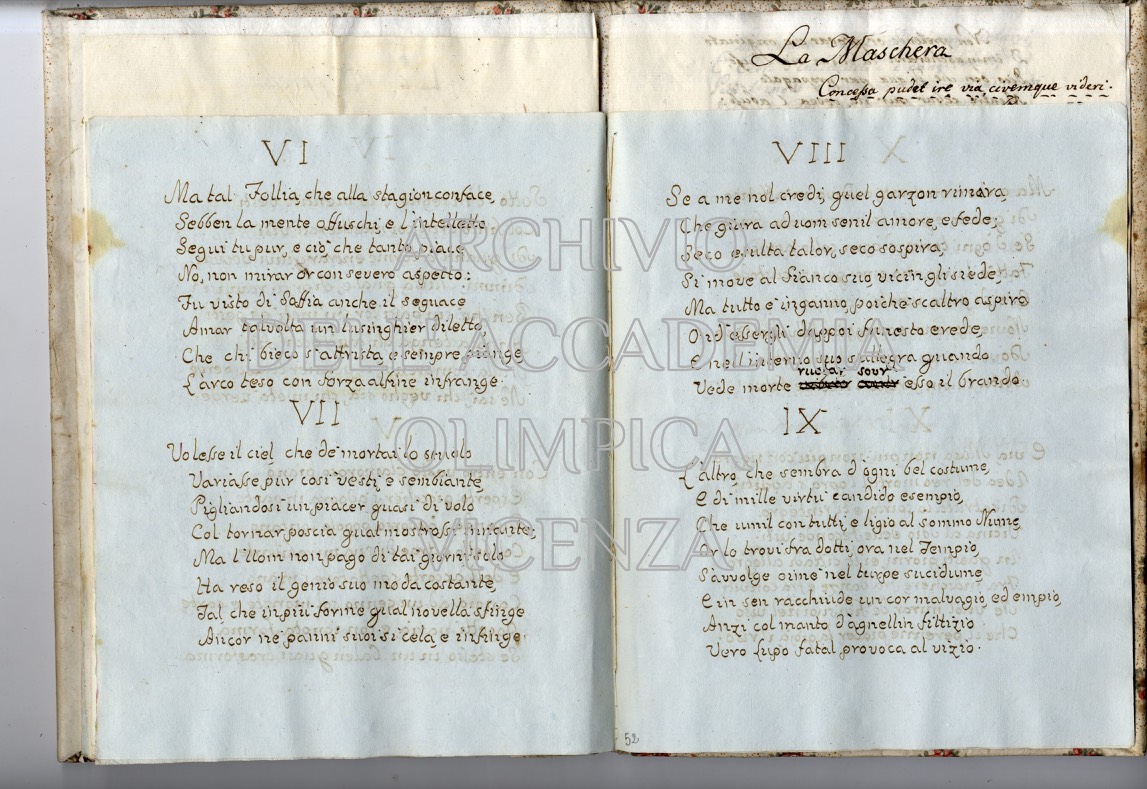 VI
Ma tal Follia, che alla stagion conface,
Sebben la mente offuschi, e l'intelletto
Segui tu pur, e ciò che tanto piace
No, non mirar or con severo aspetto:
Fu visto di Soffia anche il seguace
Amar talvolta un lusinghier diletto,
Che chi bieco s'attrista, e sempre piange
L'arco teso con forza alfine infrange.
VII
Volesse il ciel che de' mortai lo stuolo
Variasse pur così vesti e sembiante,
Pigliandosi un piacer quasi di volo
Col tornar poscia qual mostrossi innante;
Ma l'Uom non pago di tai giorni solo
Ha reso il genio suo moda costante,
Tal che in più forme qual novella sfinge
Ancor ne' panni suoi si cela, e infinge.
La Maschera
Concessa pudet ire via, civemque videri.
VIII
Se a me nol credi, quel garzon rimira,
Che giura ad uom senil amore, e fede,
Seco esulta talor, seco sospira,
Si move al fianco suo, vicin gli siede,
Ma tutto è inganno, poichè scaltro aspira
Ond'essergli dappoi funesto erede,
E nell'interno suo s'allegra quando
Vede morte ruotar sovr' esso il brando
IX
L'altro, che sembra d'ogni bel costume,
E di mille virtù candido esempio,
Che umil con tutti, e ligio al sommo Nume,
Or lo trovi fra dotti, ora nel Tempio,
S'avvolge oimè nel turpe sucidiume,
E in sen racchiude un cor malvagio, ed empio,
Anzi col manto d'agnellin fittizio
Vero Lupo fatal provoca al vizio.
52
ARCHIVIO
DELL'ACCADEMIA
OLIMPICA
VICENZA